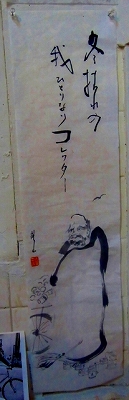 冬枯れの
我ひとりなり
コレクター